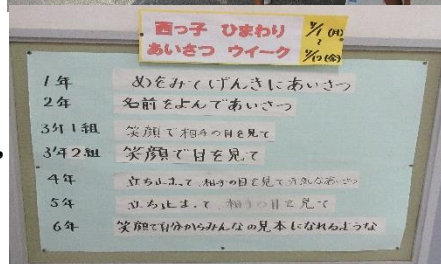 西っ子 ひまわり
あいさつ ウィーク
(月)
〜
(金)
1年 めをみてげんきにあいさつ
2年 名前をよんであいさつ
3年1組 笑顔で相手の目を見て
3年2組 笑顔で目を見て
4年 立ち止まって、相手の目を見て元気なあいさつ
5年 立ち止まって、相手の目を見て
6年 笑顔で自分からみんなの見本になれるような